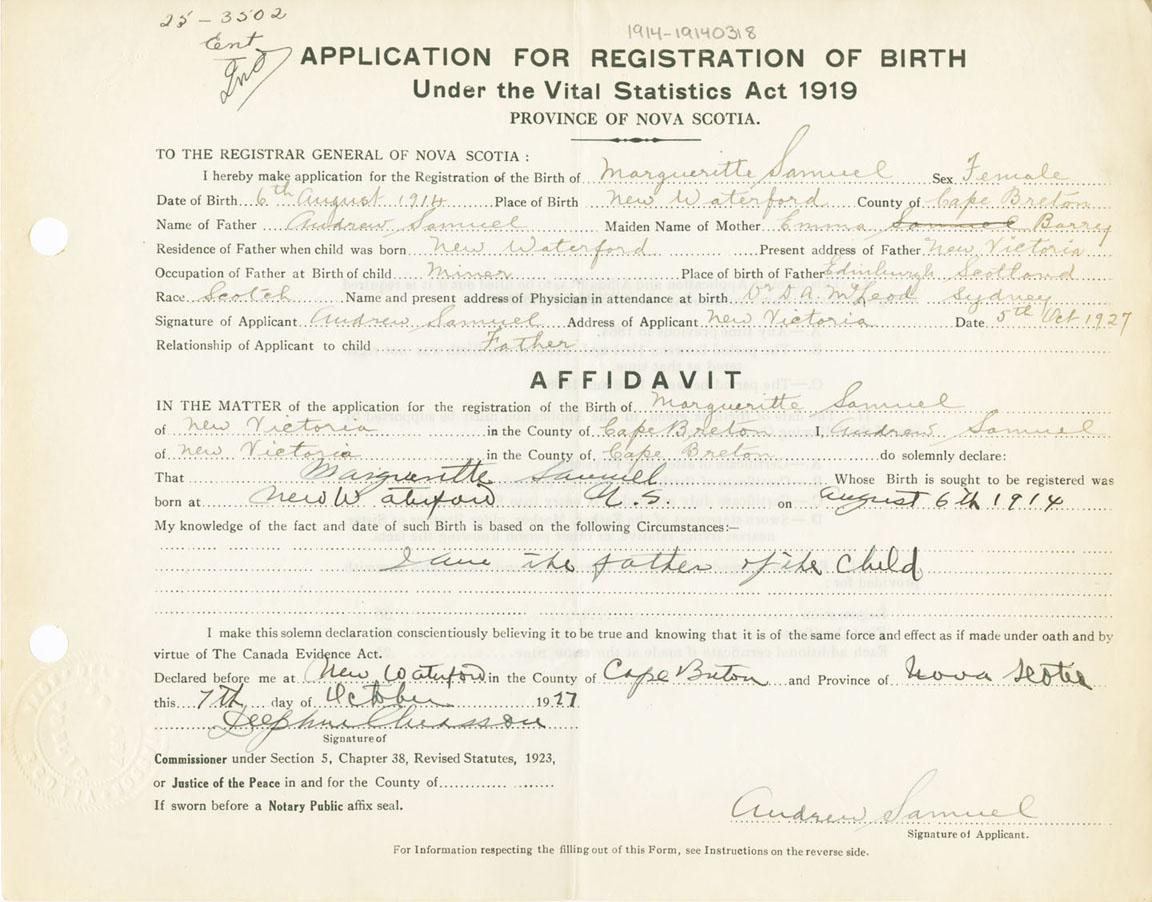 25-3502
1914-19140318
Ent
APPLICATION FOR REGISTRATION OF BIRTH
Under the Vital Statistics Act 1919
PROVINCE OF NOVA SCOTIA.
TO THE REGISTRAR GENERAL OF NOVA SCOTIA:
I hereby make application for the Registration of the Birth of Margueritte Samuel Sex Female
Date of Birth 6th August 1914 Place of Birth New Waterford County of Cape Breton
Name of Father Andrew Samuel Maiden Name of Mother Emma Samuel Barry
Residence of Father when child was born New Waterford Present address of Father New Victoria
Occupation of Father at Birth of child Miner Place of birth of Father Edinburgh Scotland
Race Scotch Name and present address of Physician in attendance at birth Dr D A. McLeod Sydney
Signature of Applicant Andrew Samuel Address of Applicant New Victoria Date 5th Oct 1927
Relationship of Applicant to child Father
AFFIDAVIT
IN THE MATTER of the application for the registration of the Birth of Margueritte Samuel
of New Victoria in the County of Cape Breton I, Andrew Samuel
of New Victoria in the County of Cape Breton do solemnly declare:
That Margueritte Samuel Whose Birth is sought to be registered was
born at New Waterford N.S. on August 6th 1914
My knowledge of the fact and date of such Birth is based on the following Circumstances:—
I am the father of the Child
I make this solemn declaration conscientiously believing it to be true and knowing that it is of the same force and effect as if made under oath and by
virtue of The Canada Evidence Act.
Declared before me at New Waterford in the County of Cape Breton and Province of Nova Scotia
this 7th day of October 1927
Signature of
Commissioner under Section 5, Chapter 38, Revised Statutes, 1923,
or Justice of the Peace in and for the County of
If sworn before a Notary Public affix seal.
Andrew Samuel
Signature of Applicant.
For Information respecting the filling out of this Form, see Instructions on the reverse side.